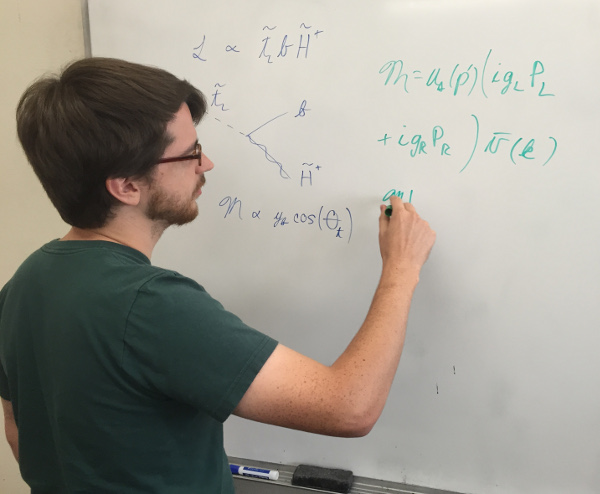 ℒ ∝ t̃_L b H̃⁺
t̃_L
b
H̃⁺
ℳ ∝ y_t cos(θ_t)
ℳ = u_s(p')(ig_L P_L
+ ig_R P_R) v̄(k)